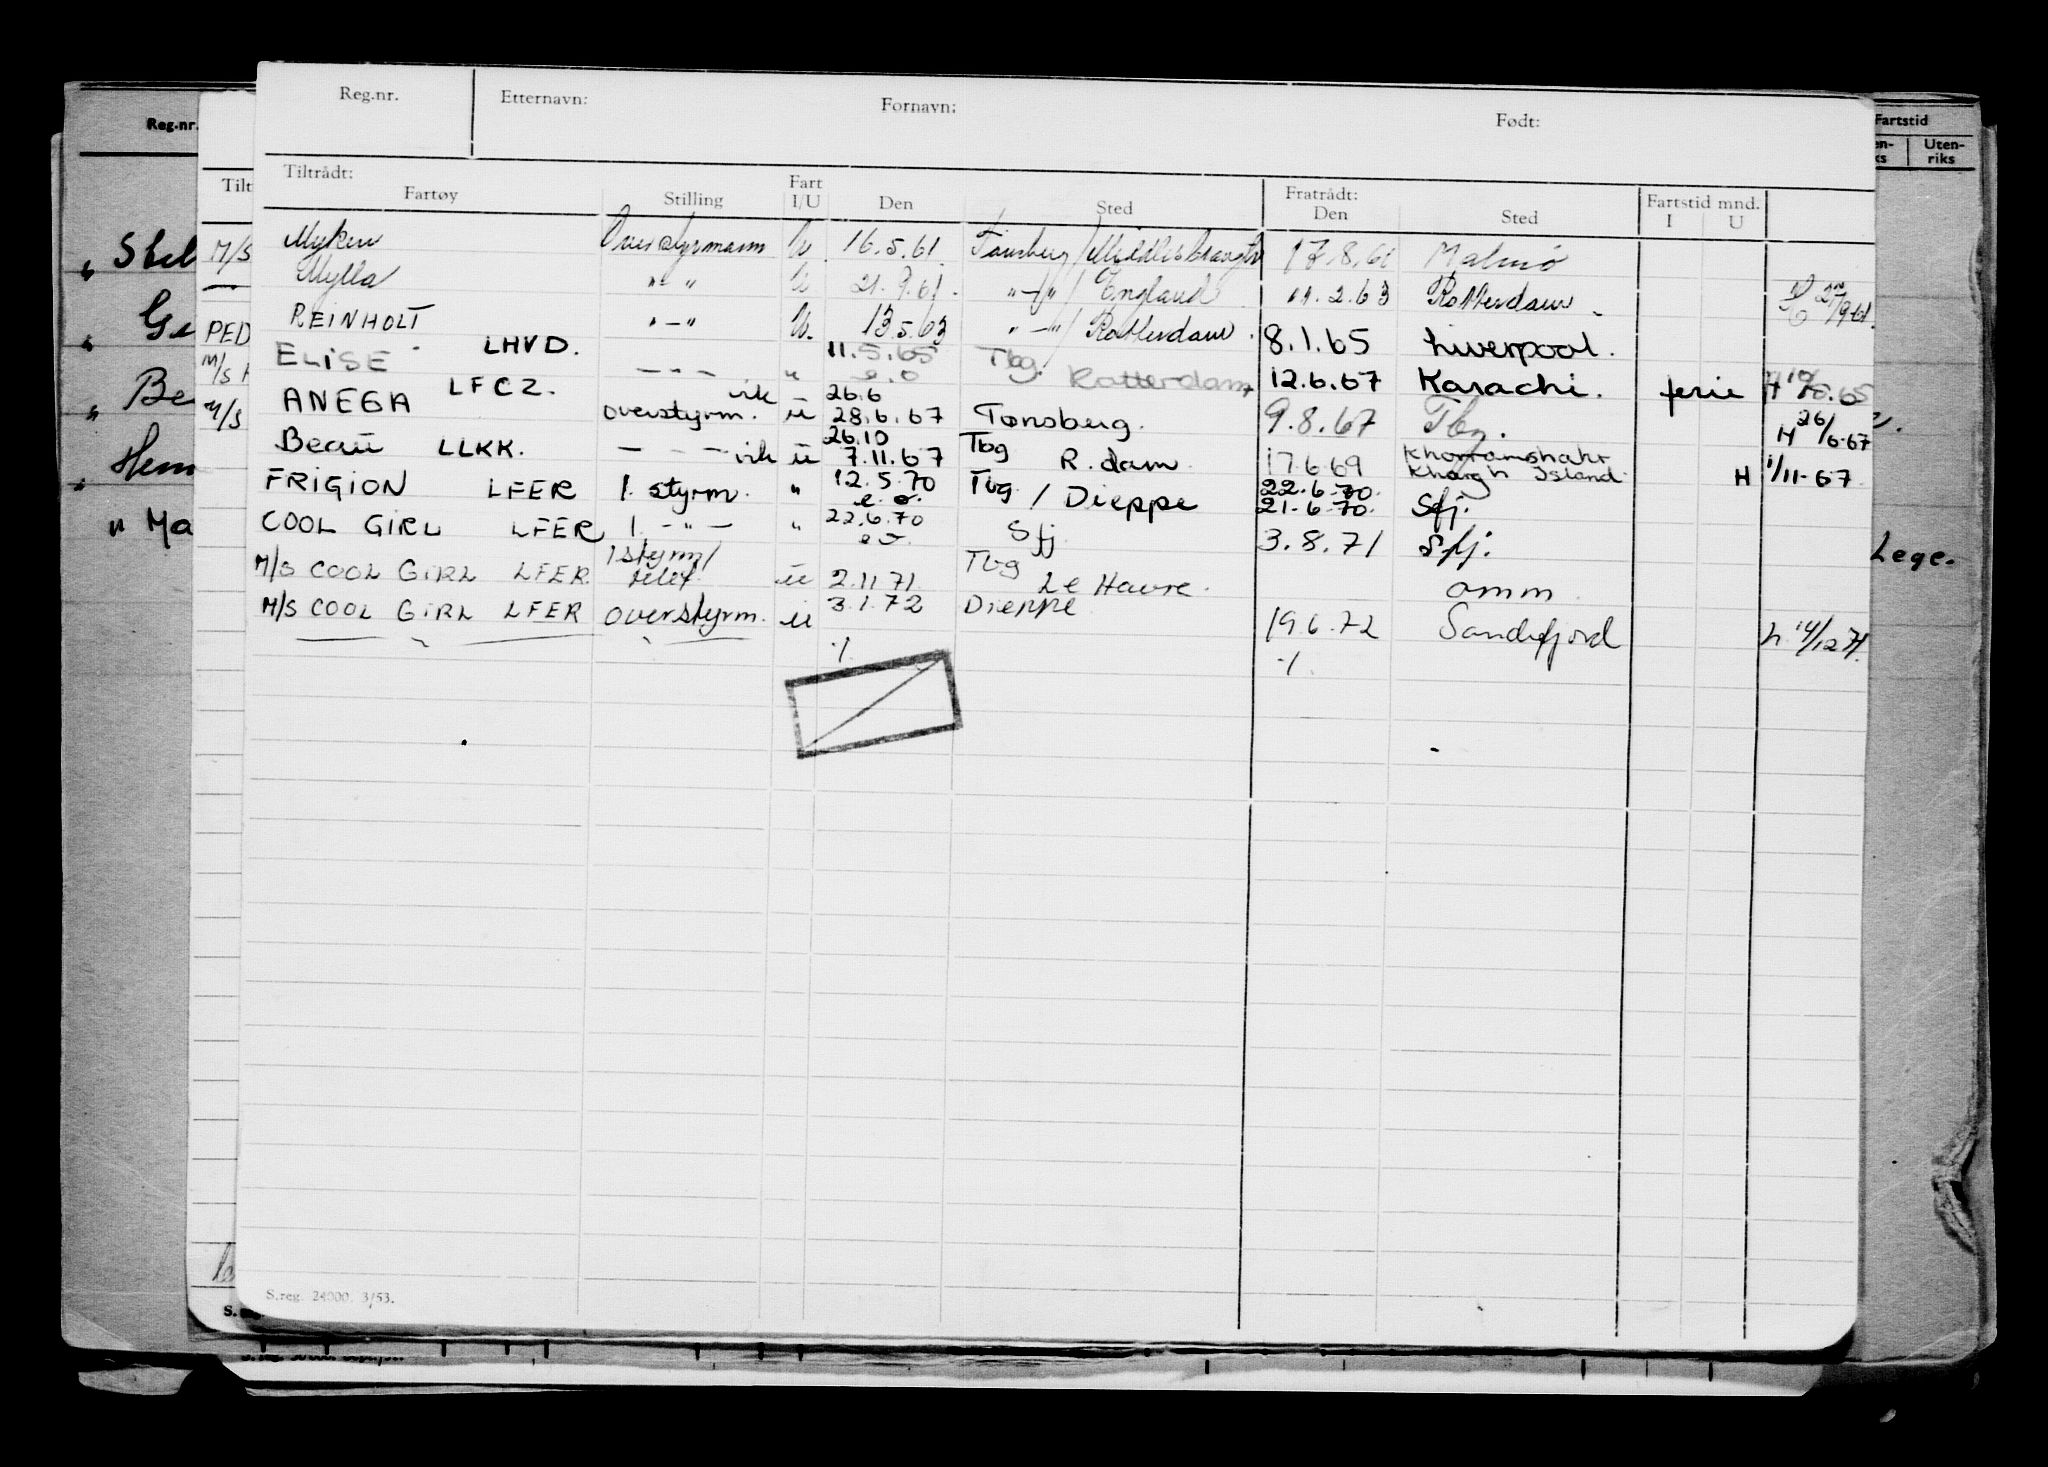 Reg.nr. Etternavn: Fornavn: Født:
Tiltrådt: Fartøy Stilling Fart I/U Den Sted Fratrådt: Den Sted Fartstid mnd. I U
Myken Overstyrmann U 16.5.61. Tønsberg / 17.8.61 Malmø
Mylla " - " U 21.9.61. " - " / England 11.2.63 Rotterdam
REINHOLT " - " U. 13.5.63 " - " / Rotterdam. 8.1.65 Liverpool.
ELISE LHVD. — " — " 11.5.65 e.o Tbg. Rotterdam 12.6.67 Karachi. ferie
ANEGA LFCZ. overstyrm. vik ü 26.6 28.6.67 Tønsberg. 9.8.67 Tbg. H 26/6-67
Beau LLKK. — - — vik ü 26.10 7.11.67 Tbg R.dam 17.6.69 Khorramshahr Khargh Island H 1/11-67
FRIGION LFER 1. styrm. " 12.5.70 e.o. Tbg. / Dieppe 22.6.70. 21.6.70. Sfj.
COOL GIRL LFER 1. - " - " 22.6.70 e.o. Sfj 3.8.71 Sfj.
M/S COOL GIRL LFER 1 styrm/ telef. ü 2.11.71. Tbg Le Havre. omm
M/S COOL GIRL LFER overstyrm. ü 3.1.72 Dieppe 19.6.72 Sandefjord h. 14/12 71.
·/. ·/.
S.reg. 24000. 3/53.
Reg.nr.
Tilt
M/S
PED
M/S
M/S
" Stel
" Ge
" Be
" Hem
" Ma
Fartstid
Uten-
riks
Lege.